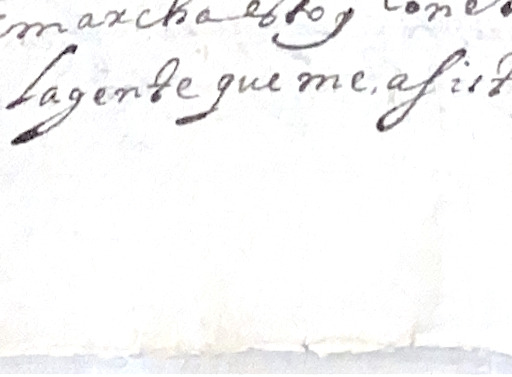 marcha estoy con e
la gente que me, asist